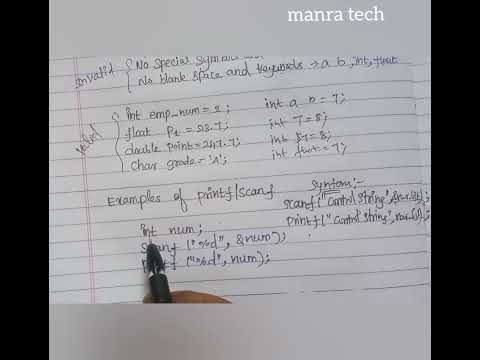 manra tech
Invalid { No special symbols
No blank space and keywords → a b, int, float
Valid { int emp_num = 2; int a b = 7;
float Pt = 513.7; int 7 = 8;
double point = 247.7; int = 8;
char grade = 'A'; int float = 7;
Examples of printf/Scanf Syntax:-
scanf("Control string", &var.list);
int num; printf("Control string", var.list);
Scanf ("%d", &num);
printf ("%d", num);